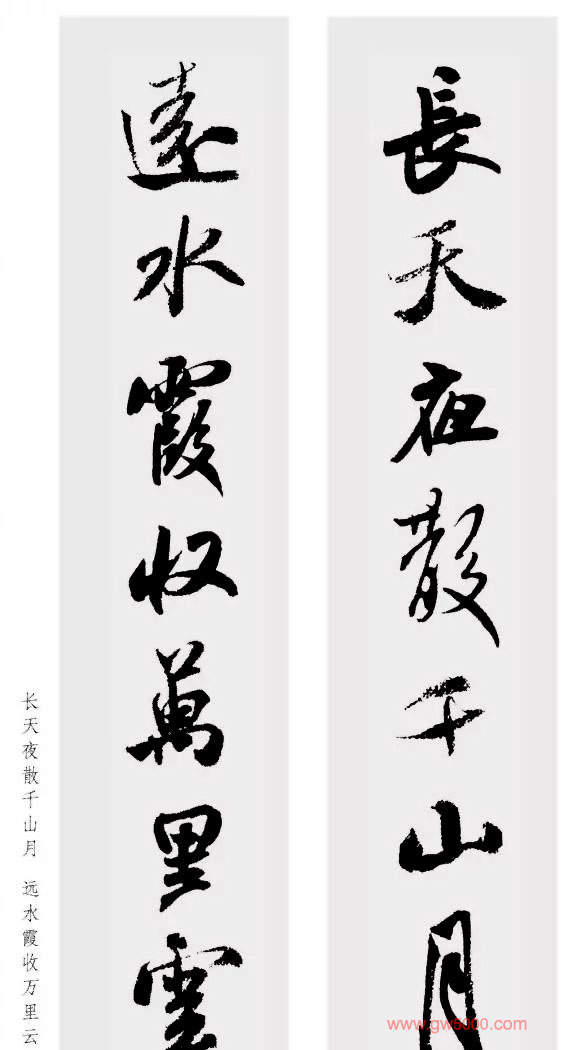 長天夜散千山月
遠水霞收萬里雲
长天夜散千山月 远水霞收万里云
www.gw5000.com